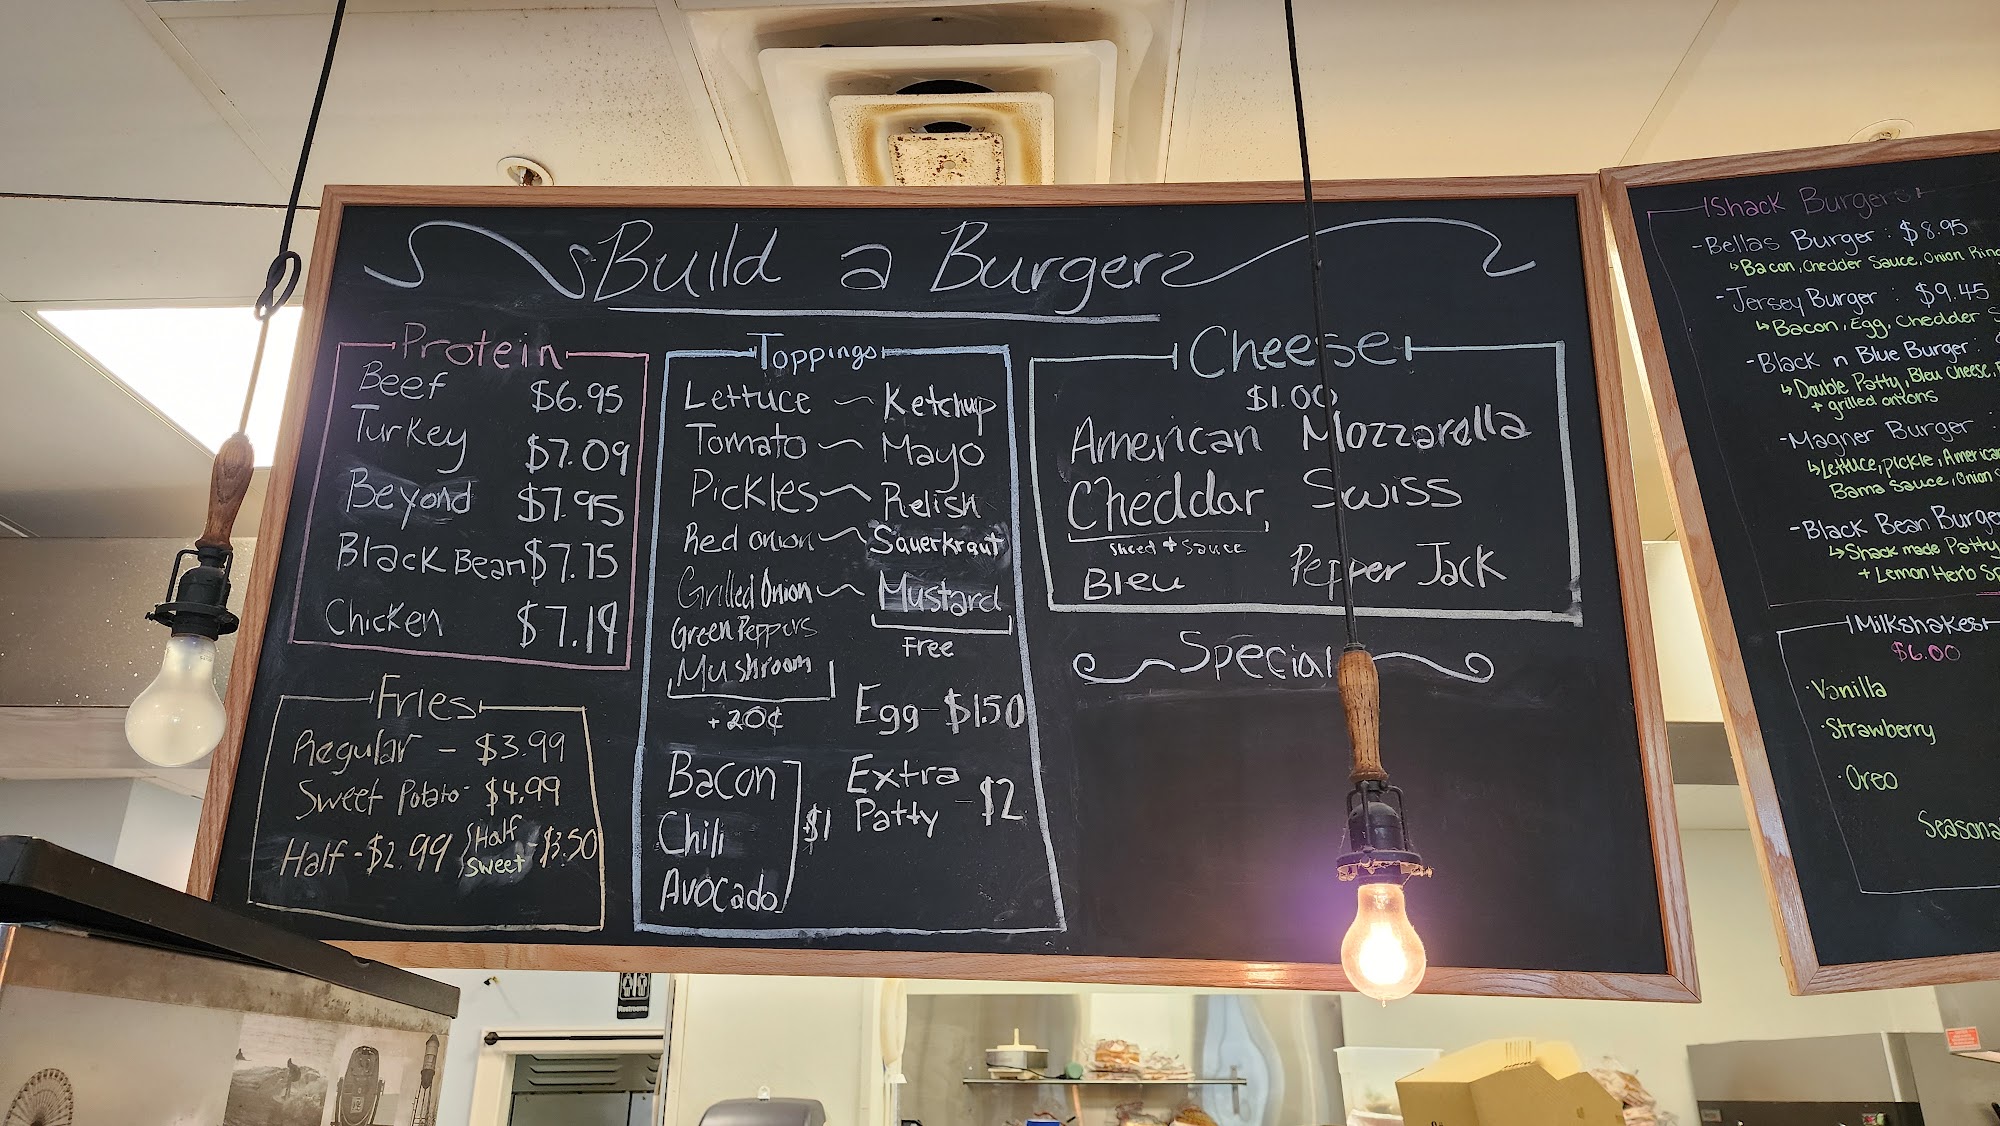 Build a Burger
Protein
Beef $6.95
Turkey $7.09
Beyond $7.95
Black Bean $7.75
Chicken $7.19
Fries
Regular - $3.99
Sweet Potato - $4.99
Half - $2.99 / Half Sweet - $3.50
Toppings
Lettuce ~ Ketchup
Tomato ~ Mayo
Pickles ~ Relish
Red onion ~ Sauerkraut
Grilled Onion ~ Mustard
Green Peppers
Free
Mushroom
+20¢
Egg - $1.50
Bacon
Chili
Avocado
$1
Extra
Patty - $2
Cheese
$1.00
American Mozzarella
Cheddar, Swiss
sliced + sauce
Bleu Pepper Jack
Special
Shack Burgers
- Bellas Burger : $8.95
Bacon, Chedder Sauce, Onion Ring
- Jersey Burger : $9.45
Bacon, Egg, Chedder
- Black n Blue Burger :
Double Patty, Bleu Cheese,
+ grilled onions
- Magner Burger :
Lettuce, pickle, American
Bama Sauce, Onion
- Black Bean Burger
Shack made Patty
+ Lemon Herb
Milkshakes
$6.00
· Vanilla
· Strawberry
· Oreo
Seasonal
Restrooms